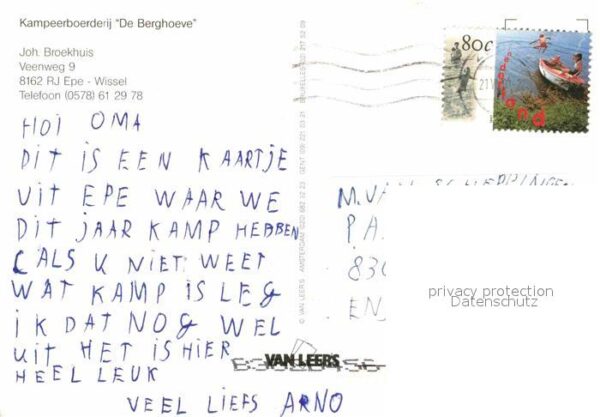 Kampeerboerderij "De Berghoeve"
Joh. Broekhuis
Veenweg 9
8162 RJ Epe - Wissel
Telefoon (0578) 61 29 78
HOI OMA
DIT IS EEN KAARTJE
UIT EPE WAAR WE
DIT JAAR KAMP HEBBEN
(ALS U NIET WEET
WAT KAMP IS LEG
IK DAT NOG WEL
UIT HET IS HIER
HEEL LEUK
VEEL LIEFS ARNO
© VAN LEER'S AMSTERDAM
VAN LEER'S
80c
nederland
M.V
P.A.
830
EN
privacy protection
Datenschutz